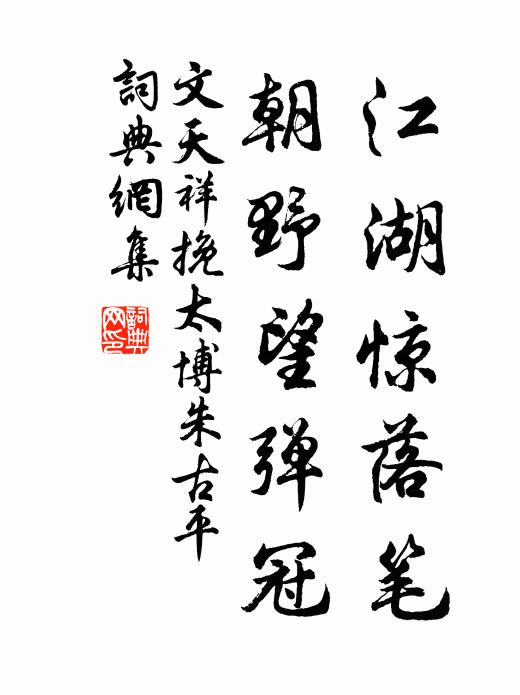 江湖惊落笔
朝野望弹冠
文天祥挽太博朱古平
詞典網集
詞典网印